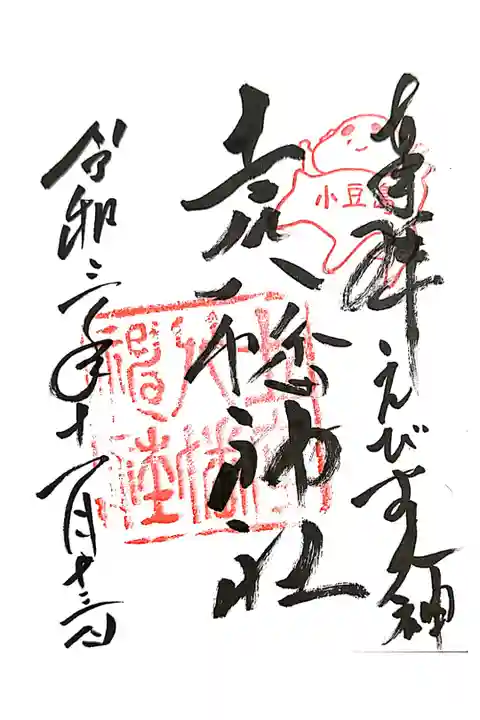 奉拝 えびす神
小豆島
土庄八幡神社
令和三年十一月十三日